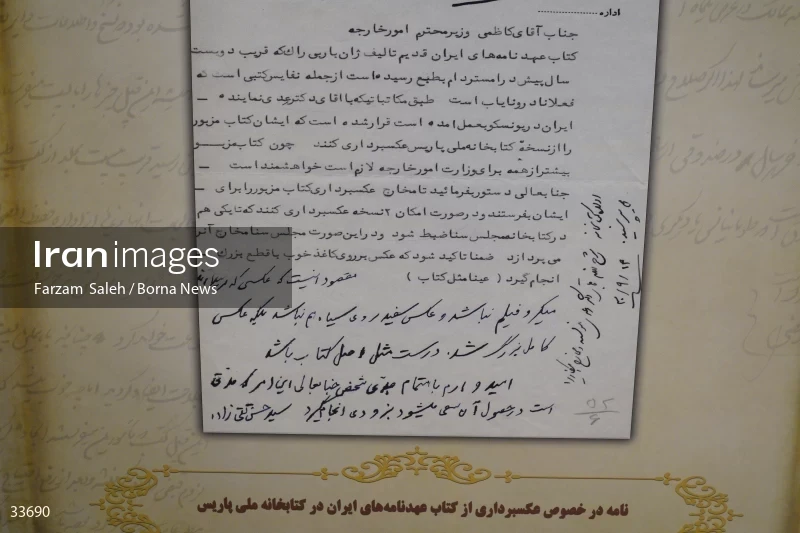 اداره
جناب آقای کاظمی وزیر محترم امور خارجه
کتاب عهد نامه های ایران قدیم تالیف ژان باربی راك که قریب دویست
سال پیش در امستردام بطبع رسیده است از جمله نفایس کتبی است که
فعلا نادر و نایاب است طبق مکاتباتیکه با اقای دکتر عدی نماینده
ایران در یونسکو بعمل امده است قرار شده است که ایشان کتاب مزبور
را از نسخهٔ کتابخانه ملی پاریس عکسبرداری کنند چون کتاب مزبور
بیشتر از همه برای وزارت امور خارجه لازم است خواهشمند است
جنابعالی دستور فرمائید تا مخارج عکسبرداری کتاب مزبور را برای
ایشان بفرستند و در صورت امکان ۲ نسخه عکسبرداری کنند که تا یکی هم
در کتابخانه مجلس سنا ضبط شود و در این صورت مجلس سنا مخارج آنرا
می پردازد ضمنا تاکید شود که عکس بر روی کاغذ خوب با قطع بزرگ
انجام گیرد ( عینا مثل کتاب ) مقصود اینست که عکسی که
میکرو فیلم نباشد و عکس سفید روی سیاه هم نباشد بلکه عکس
کامل بزرگ شده درست مثل اصل کتاب باشد
امید وارم با اهتمام شخص جنابعالی این امر که
است در حصول آن سعی میشود بزودی انجام گیرد سید حسن تقی زاده
Iranimages
Farzam Saleh / Borna News
33690
نامه در خصوص عکسبرداری از کتاب عهدنامه‌های ایران در کتابخانه ملی پاریس